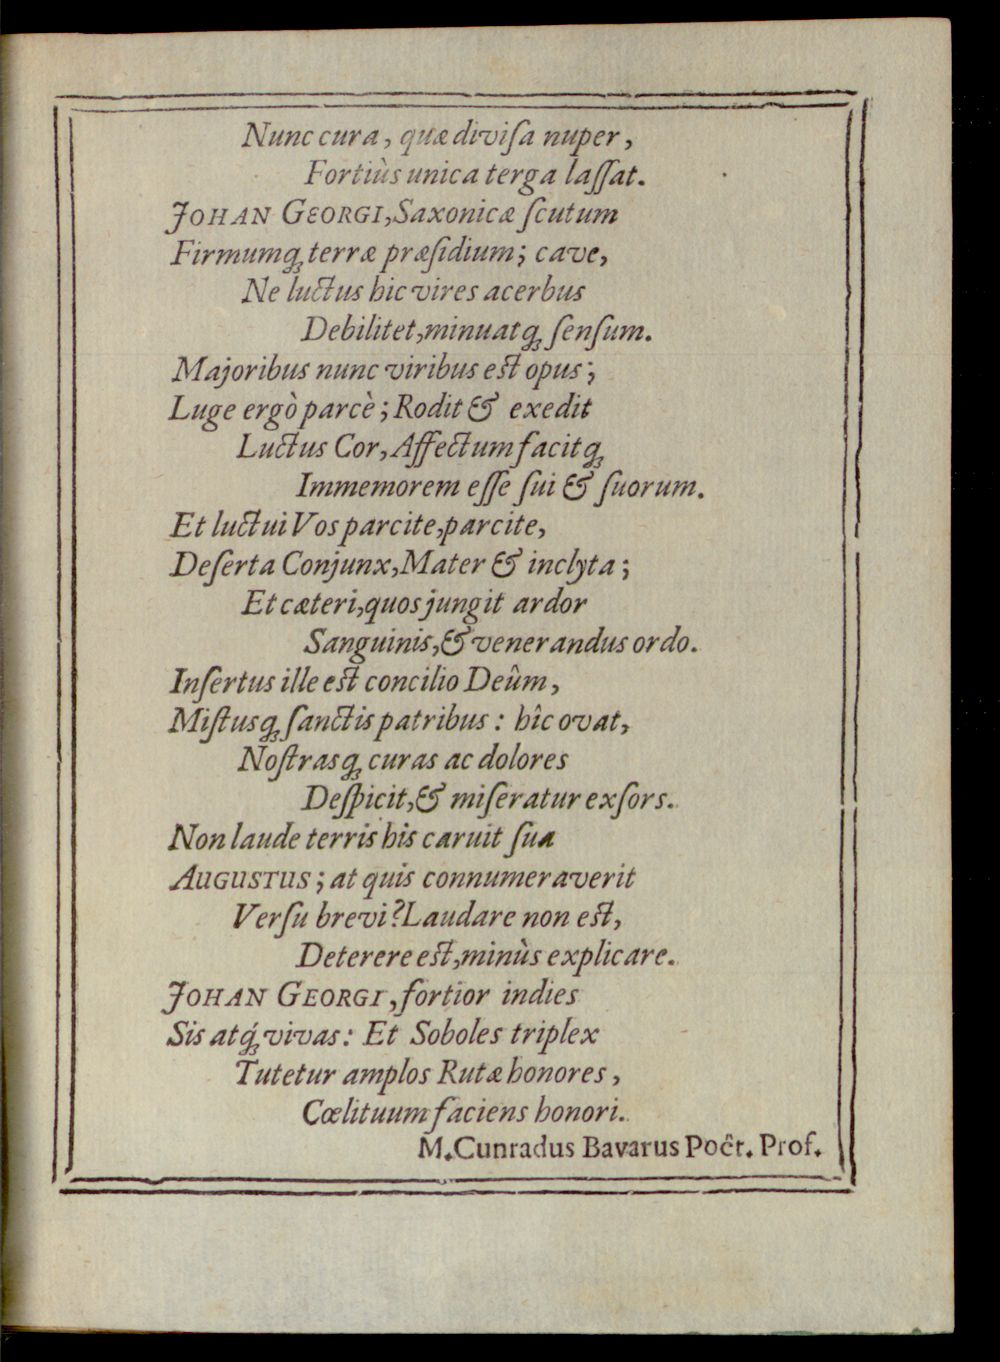 Nunc cura, quæ diviſa nuper,
Fortiùs unica terga laſſat.
JOHAN GEORGI, Saxonicæ ſcutum
Firmumq́; terræ præſidium; cave,
Ne luctus hic vires acerbus
Debilitet, minuatq́; ſenſum.
Majoribus nunc viribus eſt opus;
Luge ergò parcè; Rodit & exedit
Luctus Cor, Affectum facitq́;
Immemorem eſſe ſui & ſuorum.
Et luctui Vos parcite, parcite,
Deſerta Conjunx, Mater & inclyta;
Et cæteri, quos jungit ardor
Sanguinis, & venerandus ordo.
Inſertus ille eſt concilio Deûm,
Miſtusq́; ſanctis patribus: hîc ovat,
Noſtrasq́; curas ac dolores
Deſpicit, & miſeratur exſors.
Non laude terris his caruit ſua
AUGUSTUS; at quis connumeraverit
Verſu brevi? Laudare non eſt,
Deterere eſt, minùs explicare.
JOHAN GEORGI, fortior indies
Sis atq́; vivas: Et Soboles triplex
Tutetur amplos Rutæ honores,
Cœlituum faciens honori.
M. Cunradus Bavarus Poët. Prof.